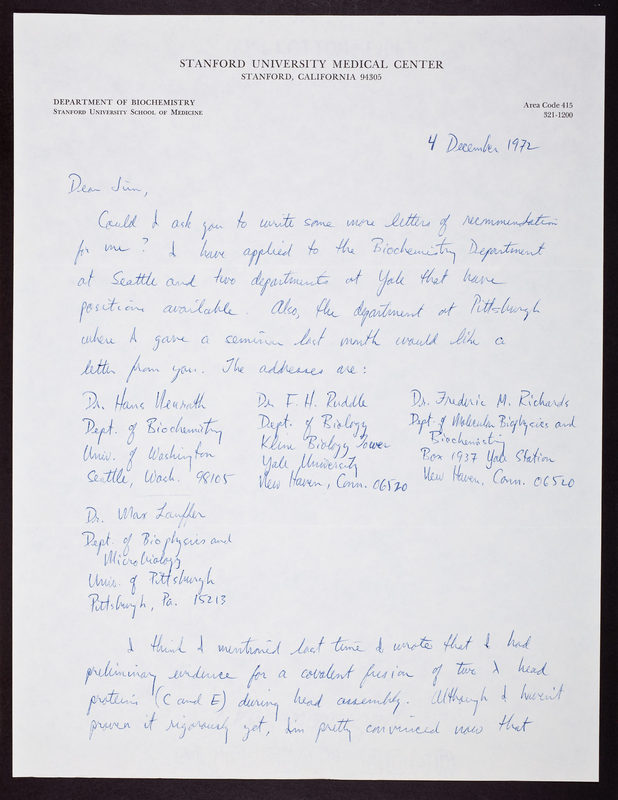 STANFORD UNIVERSITY MEDICAL CENTER
STANFORD, CALIFORNIA 94305
DEPARTMENT OF BIOCHEMISTRY
STANFORD UNIVERSITY SCHOOL OF MEDICINE
Area Code 415
321-1200
4 December 1972
Dear Jim,
Could I ask you to write some more letters of recommendation
for me? I have applied to the Biochemistry Department
at Seattle and two departments at Yale that have
positions available. Also, the department at Pittsburgh
where I gave a seminar last month would like a
letter from you. The addresses are:
Dr. Hans Neurath
Dept. of Biochemistry
Univ. of Washington
Seattle, Wash. 98105
Dr. F. H. Ruddle
Dept. of Biology
Kline Biology Tower
Yale University
New Haven, Conn. 06520
Dr. Frederic M. Richards
Dept. of Molecular Biophysics and
Biochemistry
Box 1937 Yale Station
New Haven, Conn. 06520
Dr. Max Lauffer
Dept. of Biophysics and
Microbiology
Univ. of Pittsburgh
Pittsburgh, Pa. 15213
I think I mentioned last time I wrote that I had
preliminary evidence for a covalent fusion of two λ head
proteins (C and E) during head assembly. Although I haven't
proven it rigorously yet, I'm pretty convinced now that